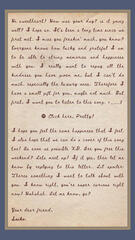 Hi sweetheart! How was your day? is it going
well? I hope so. It's been a long time since we
last met. I miss you freakin' much, you know?
Everyone knows how lucky and grateful I am
to be able to string memories and happiness
with you. I really want to repay all the
kindness you have given me, but I can't do
much, especially the luxury ones. Therefore I
have a small gift for you, maple red maid. But
first, I want you to listen to this song. ♪
Click here, Pretty!
I hope you feel the same happiness that I feel.
I also hope that we can do a cover of this song
too! So soon as possible X.D. Are you free this
weekend? Let's meet up! If it yes, then let me
know by replying to this letter. I'd wanna
There's something I want to talk about with
you. I know right, you're super curious right
now? Hahaha!. Let me know, ya?
Your dear friend,